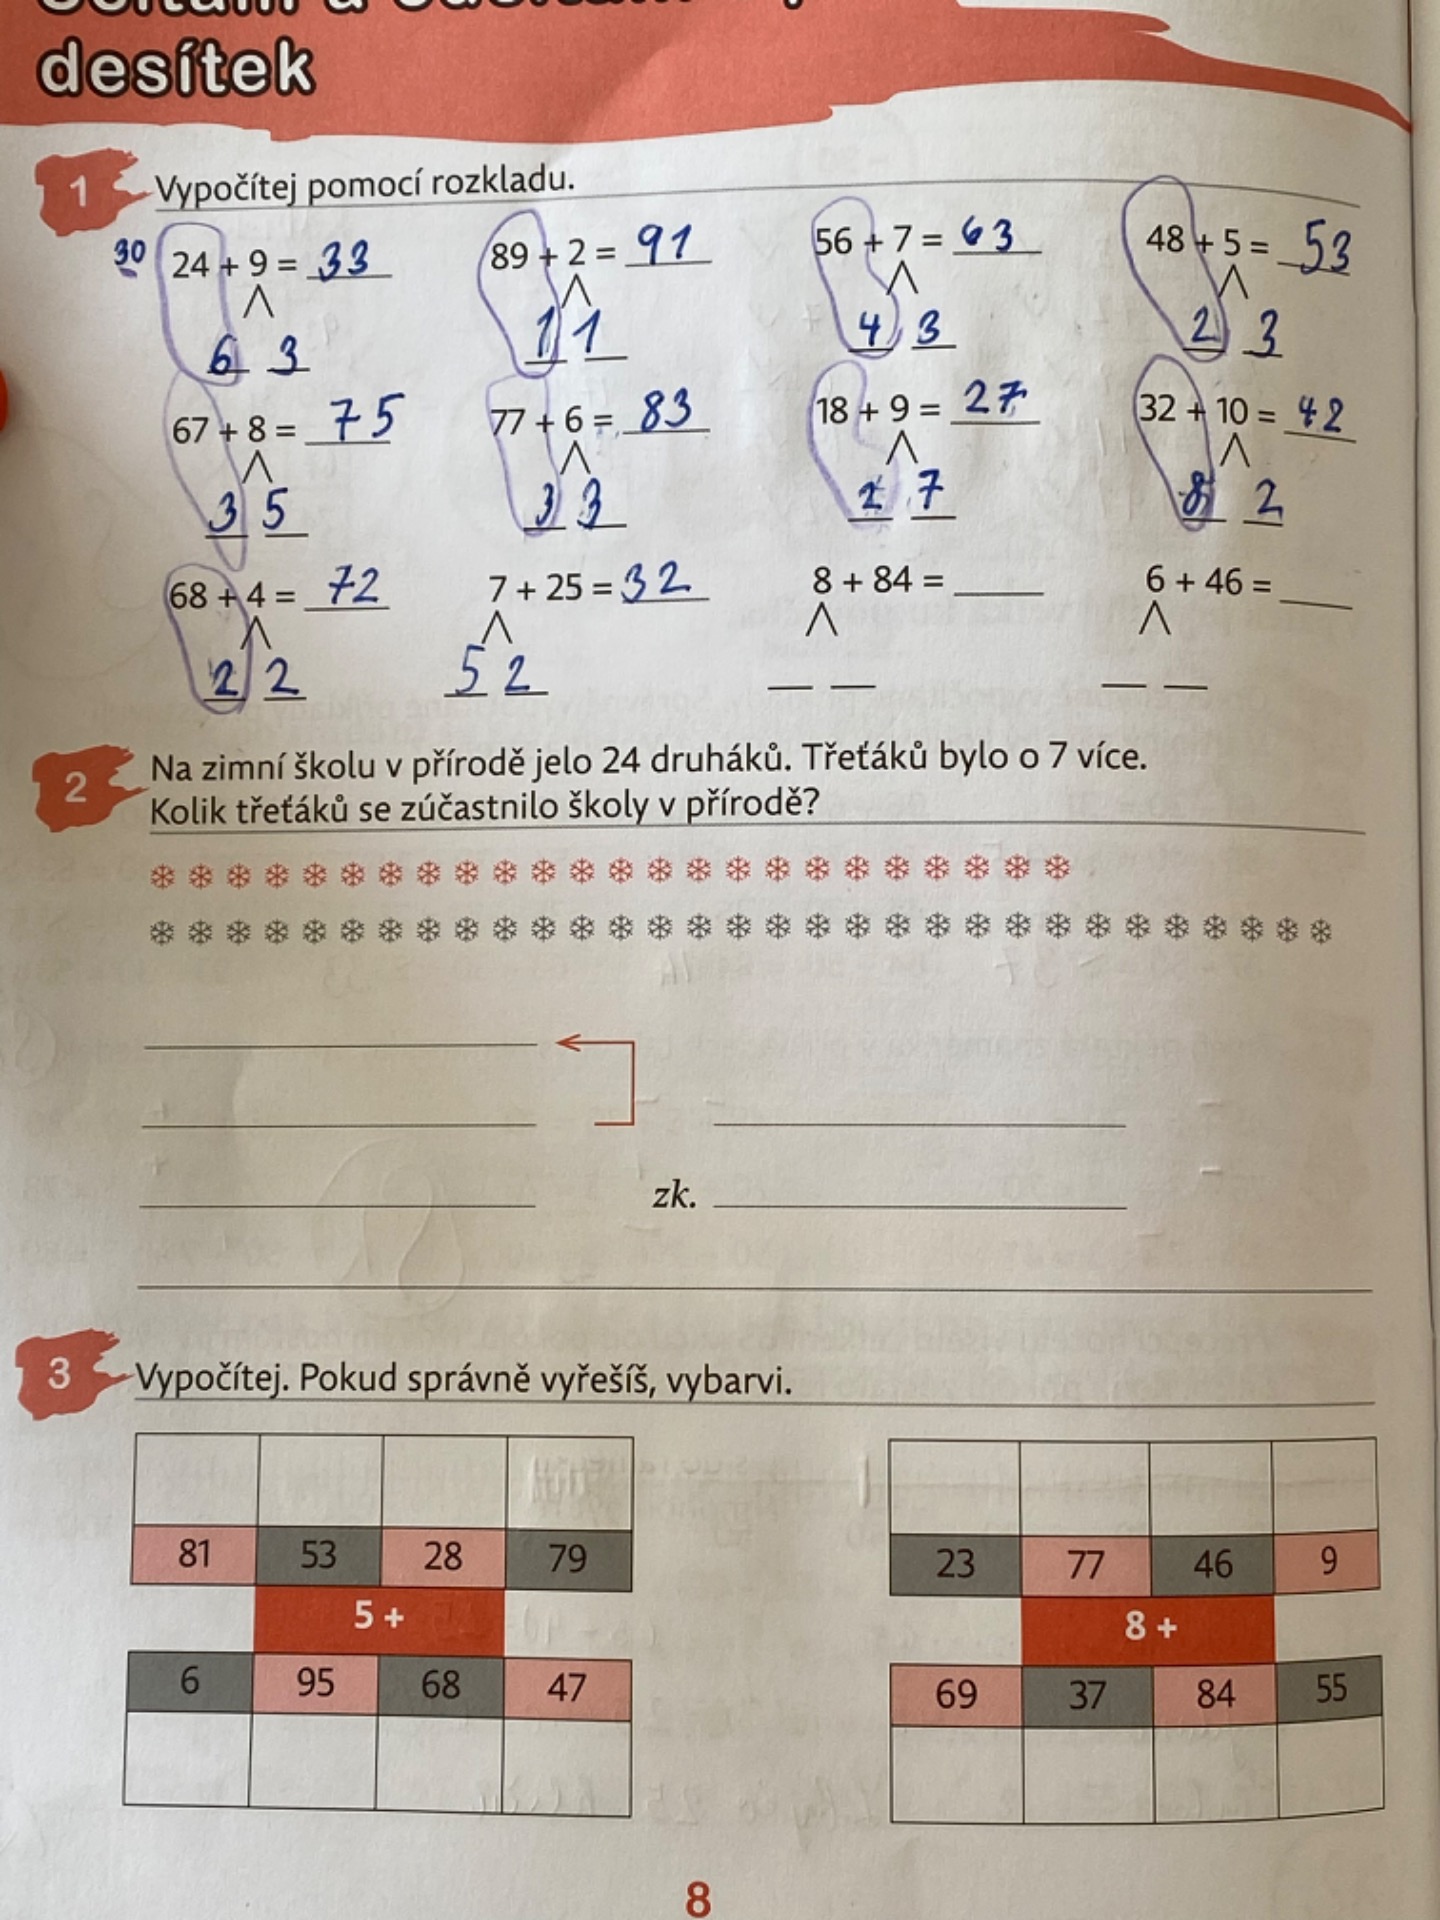 desítek
1 Vypočítej pomocí rozkladu.
30 24 + 9 = 33 89 + 2 = 91 56 + 7 = 63 48 + 5 = 53
6 3 1 1 4 3 2 3
67 + 8 = 75 77 + 6 = 83 18 + 9 = 27 32 + 10 = 42
3 5 3 3 2 7 8 2
68 + 4 = 72 7 + 25 = 32 8 + 84 = 6 + 46 =
2 2 5 2
2 Na zimní školu v přírodě jelo 24 druháků. Třeťáků bylo o 7 více.
Kolik třeťáků se zúčastnilo školy v přírodě?
zk.
3 Vypočítej. Pokud správně vyřešíš, vybarvi.
81 53 28 79 23 77 46 9
5 + 8 +
6 95 68 47 69 37 84 55
8